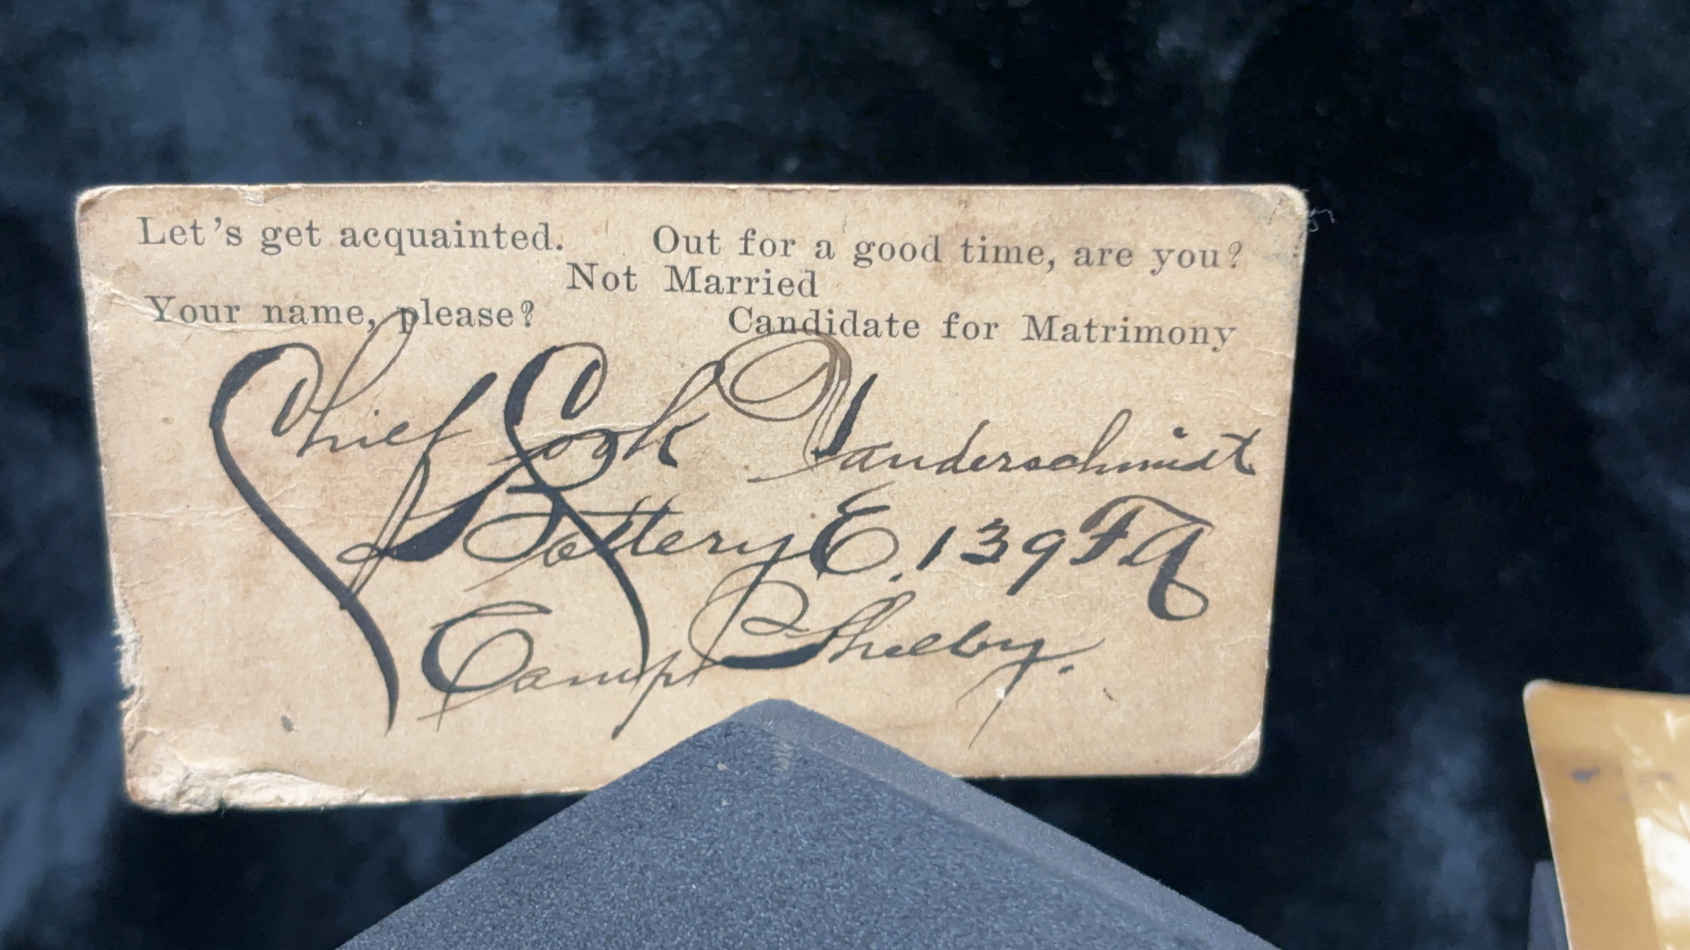 Let's get acquainted. Out for a good time, are you?
Not Married
Your name, please? Candidate for Matrimony
Chief Cook Vanderschmidt
Battery E. 139 FA
Camp Shelby.